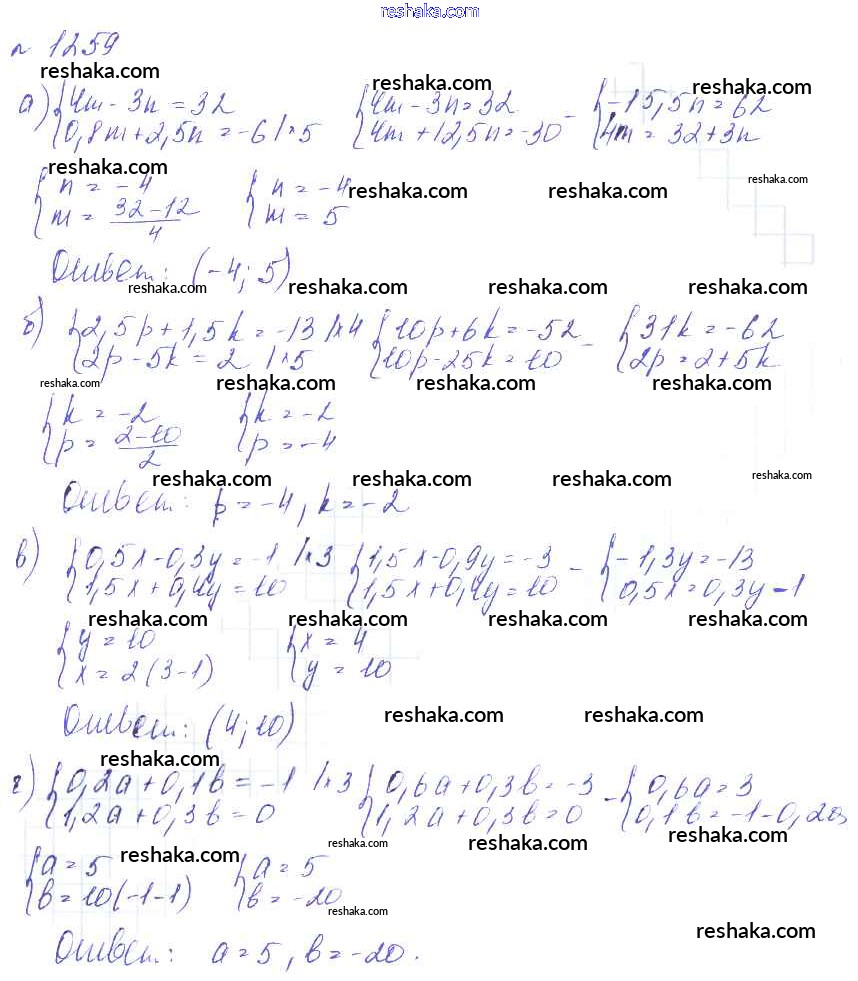 reshaka.com
n 1259
reshaka.com reshaka.com reshaka.com
а) {4m - 3n = 32 {4m - 3n = 32 - {-15,5n = 62
0,8m + 2,5n = -6 | × 5 4m + 12,5n = -30 4m = 32 + 3n
reshaka.com reshaka.com reshaka.com reshaka.com
{n = -4 {n = -4
m = 32-12/4 m = 5
Ответ: (-4; 5)
reshaka.com reshaka.com reshaka.com reshaka.com
б) {2,5p + 1,5k = -13 | × 4 {10p + 6k = -52 - {31k = -62
2p - 5k = 2 | × 5 10p - 25k = 10 2p = 2 + 5k
reshaka.com reshaka.com reshaka.com reshaka.com
{k = -2 {k = -2
p = 2-10/2 p = -4
reshaka.com reshaka.com reshaka.com reshaka.com
Ответ: p = -4, k = -2
в) {0,5x - 0,3y = -1 | × 3 {1,5x - 0,9y = -3 - {-1,3y = -13
1,5x + 0,4y = 10 1,5x + 0,4y = 10 0,5x = 0,3y - 1
reshaka.com reshaka.com reshaka.com reshaka.com
{y = 10 {x = 4
x = 2(3-1) y = 10
Ответ: (4; 10)
reshaka.com reshaka.com
reshaka.com
г) {0,2a + 0,1b = -1 | × 3 {0,6a + 0,3b = -3 - {0,6a = 3
1,2a + 0,3b = 0 1,2a + 0,3b = 0 0,1b = -1 - 0,2a
reshaka.com reshaka.com reshaka.com reshaka.com
{a = 5 {a = 5
b = 10(-1-1) b = -20
reshaka.com
reshaka.com
Ответ: a = 5, b = -20.